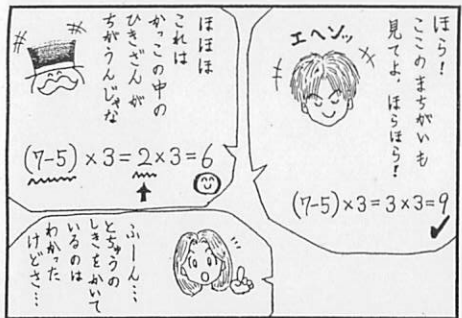 ほら!
ここのまちがいも
見てよ、ほらほら!
エヘンッ
(7-5)×3=3×3=9
ほほほ
これは
かっこの中の
ひきざんが
ちがうんじゃな
(7-5)×3=2×3=6
ふーん…
とちゅうの
しきをかいて
いるのは
わかった
けどさ…